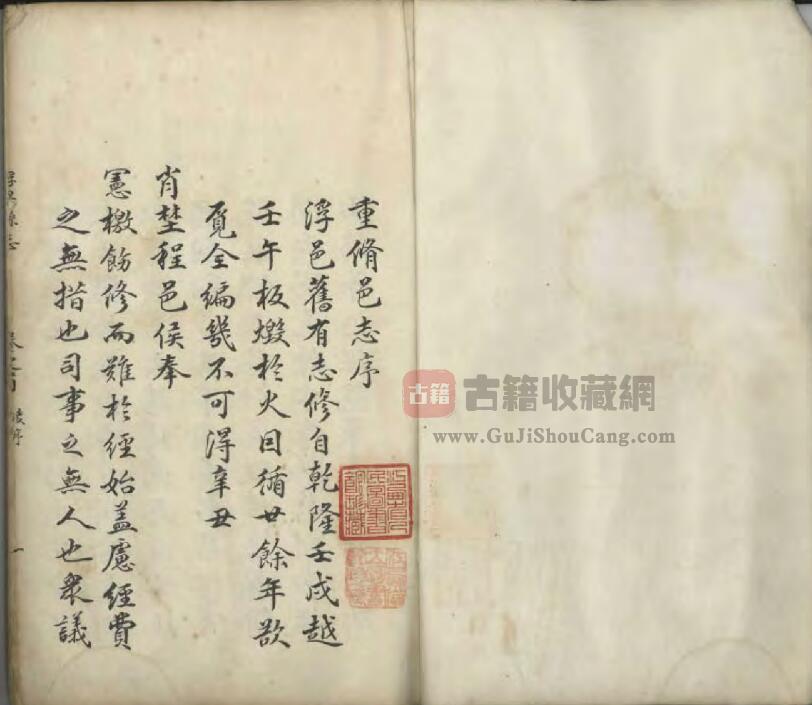 重脩邑志序
浮邑舊有志修自乾隆壬戌越
壬午板燬於火因循廿餘年欲
覓全編幾不可得辛丑
肖埜程邑侯奉
憲檄飭修而難於經始盖慮經費
之無措也司事之無人也衆議
一
古籍
古籍收藏網
www.GuJiShouCang.com